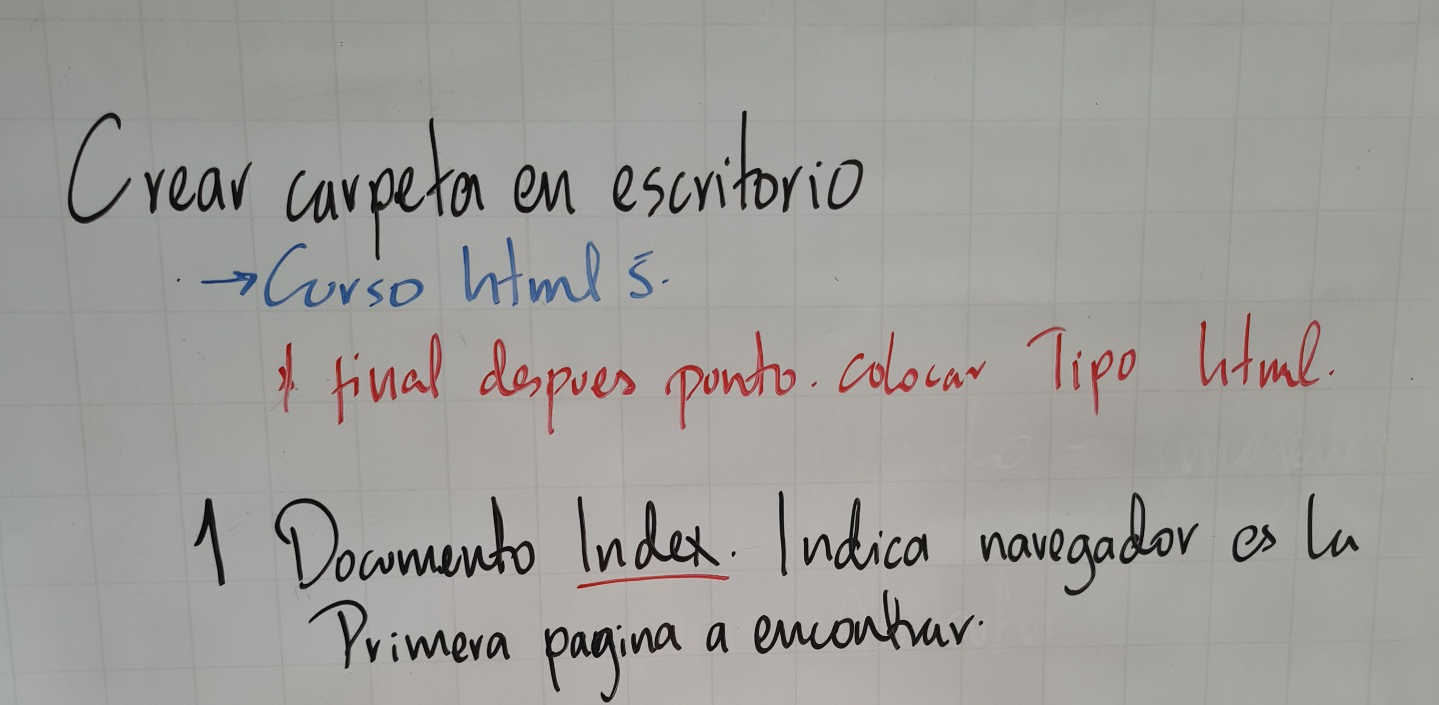 Crear carpeta en escritorio
→ Curso html 5.
* final despues punto. colocar Tipo html.
1 Documento Index. Indica navegador es la
Primera pagina a encontrar.